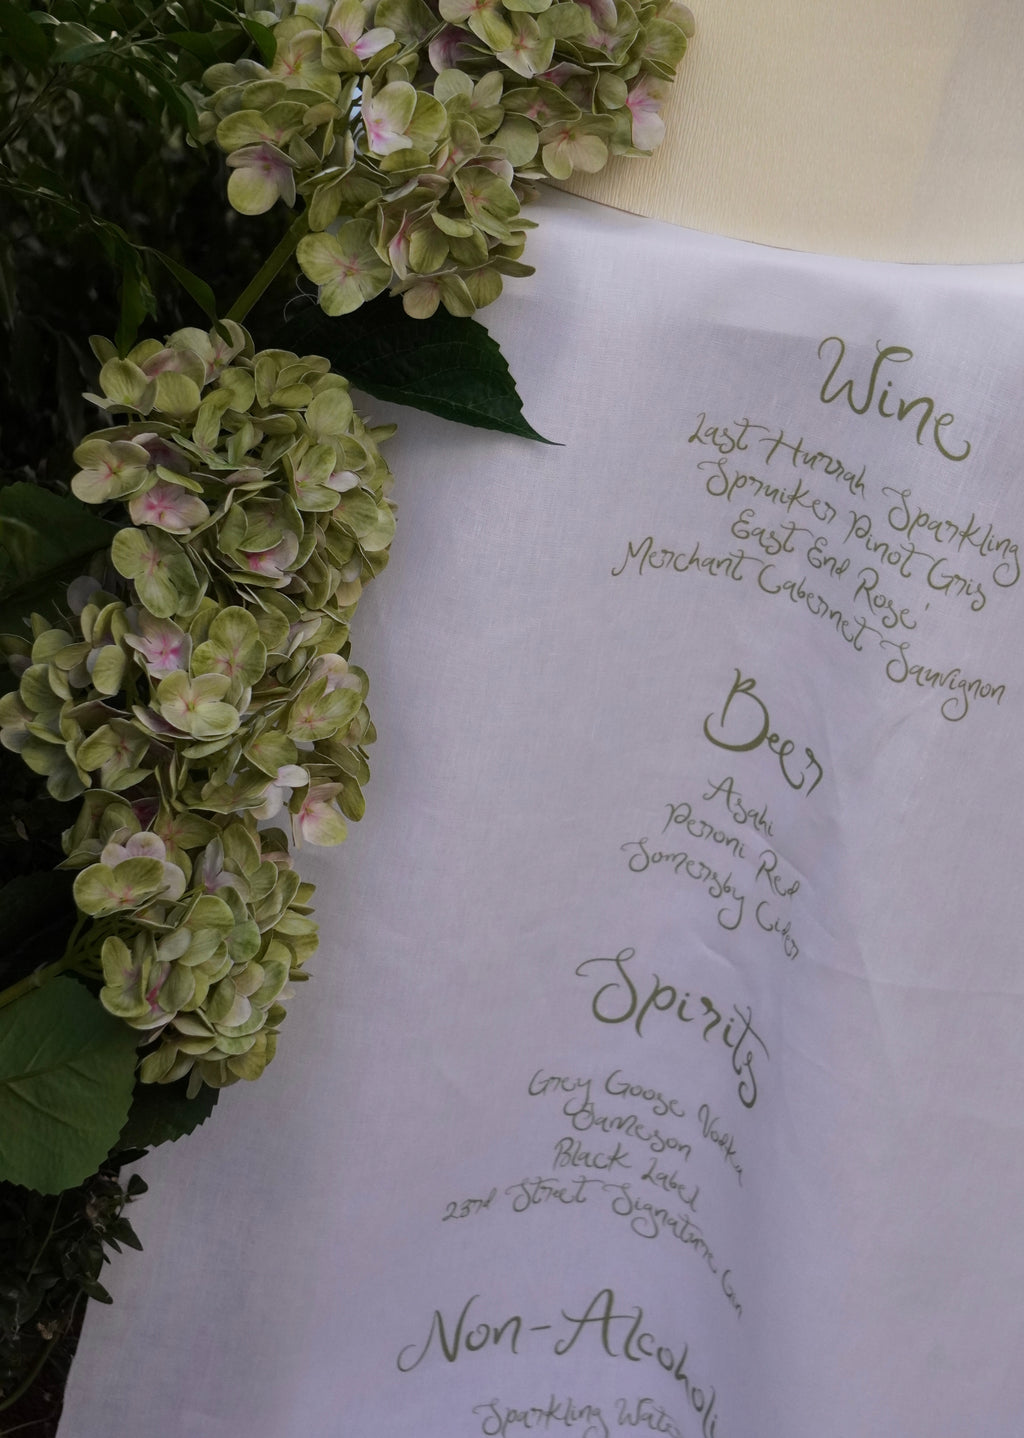 Wine
Last Hurrah Sparkling
Spruiker Pinot Gris
East End Rose'
Merchant Cabernet Sauvignon
Beer
Asahi
Peroni Red
Somersby Cider
Spirits
Grey Goose Vodka
Jameson
Black Label
23rd Street Signature Gin
Non-Alcoholi
Sparkling Wate